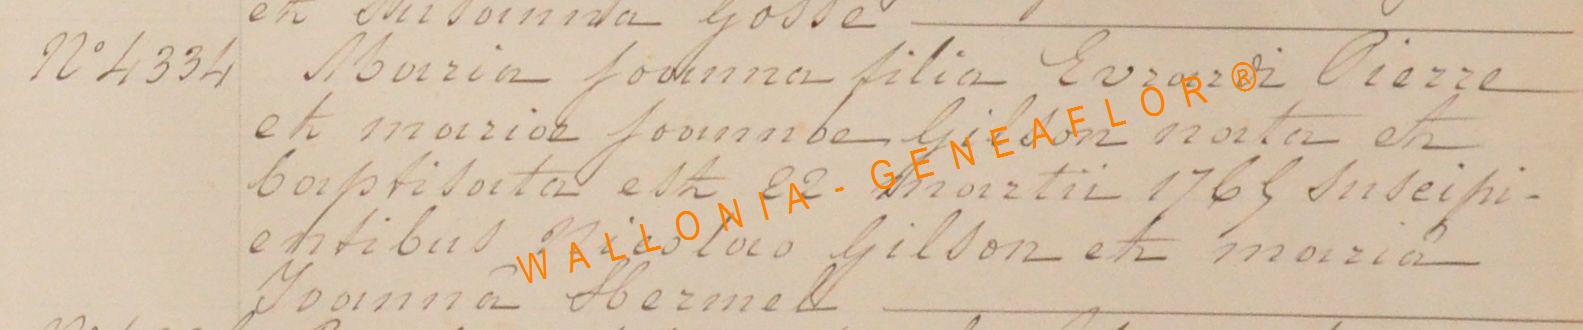 et Susanna Gosse
N° 4334 Maria Joanna filia Evrard Pierre
et mariæ Joannæ Gilson nata et
baptisata est 22 martii 1765 suscipi-
entibus Nicolao Gilson et mariâ
Joannâ Hermell
WALLONIA - GENEAFLOR ®